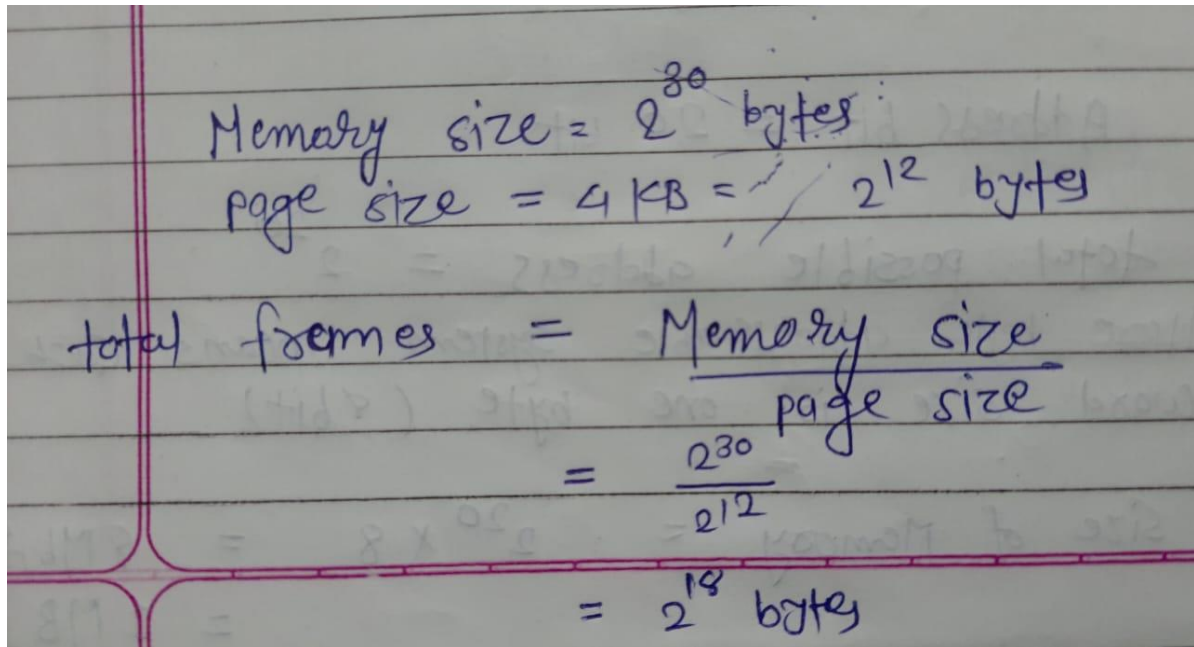 Memory size = 2^30 bytes
page size = 4 KB = 2^12 bytes
total frames = Memory size
page size
= 2^30
2^12
= 2^18 bytes